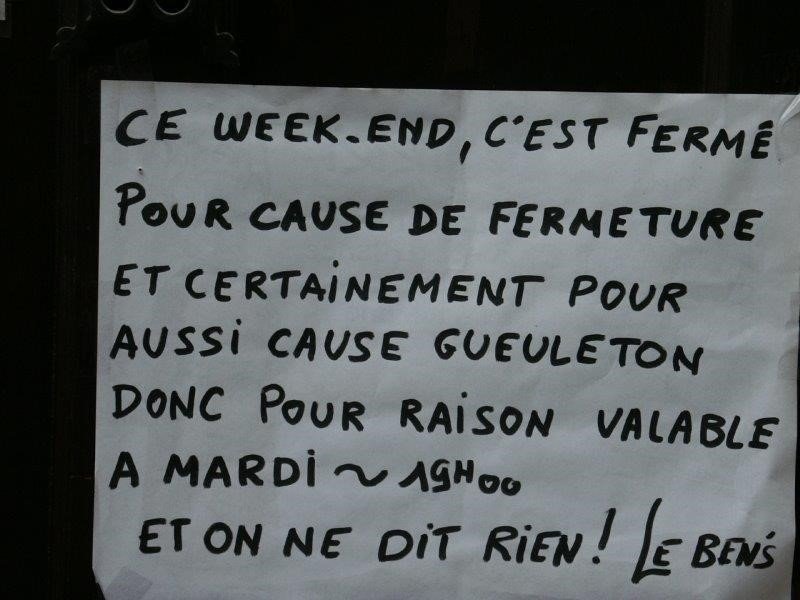 CE WEEK-END, C'EST FERMÉ
POUR CAUSE DE FERMETURE
ET CERTAINEMENT POUR
AUSSI CAUSE GUEULETON
DONC POUR RAISON VALABLE
A MARDI ~ 19H00
ET ON NE DIT RIEN! LE BEN'S